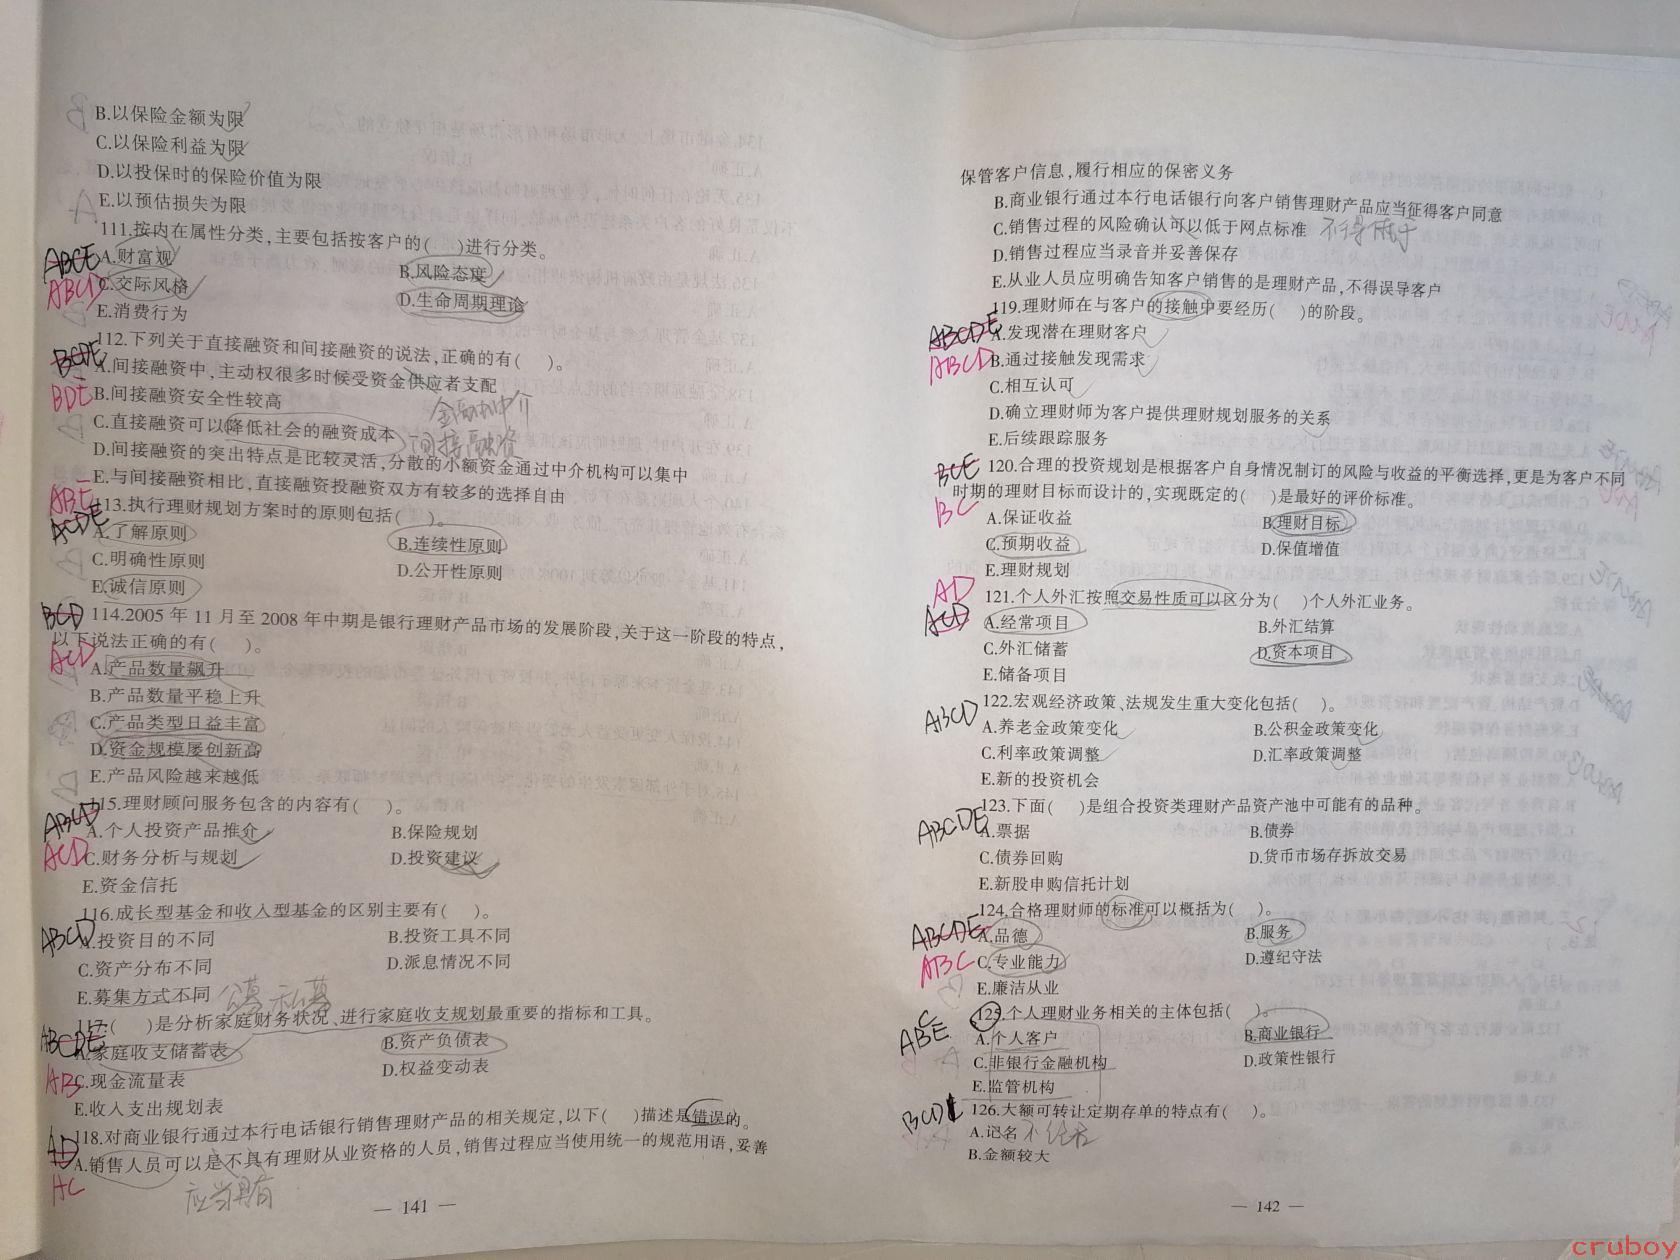 B.以保险金额为限
C.以保险利益为限
D.以投保时的保险价值为限
E.以预估损失为限
111.按内在属性分类,主要包括按客户的(　)进行分类。
ABCE A.财富观 B.风险态度
ABCD C.交际风格 D.生命周期理论
E.消费行为
112.下列关于直接融资和间接融资的说法,正确的有(　)。
BCDE A.间接融资中,主动权很多时候受资金供应者支配
BDE B.间接融资安全性较高 金融中介
C.直接融资可以降低社会的融资成本 间接融资
D.间接融资的突出特点是比较灵活,分散的小额资金通过中介机构可以集中
E.与间接融资相比,直接融资投融资双方有较多的选择自由
ABE 113.执行理财规划方案时的原则包括(　)。
ACDE A.了解原则 B.连续性原则
C.明确性原则 D.公开性原则
E.诚信原则
BCD 114.2005 年 11 月至 2008 年中期是银行理财产品市场的发展阶段,关于这一阶段的特点,
以下说法正确的有(　)。
ACD A.产品数量飙升
B.产品数量平稳上升
C.产品类型日益丰富
D.资金规模屡创新高
E.产品风险越来越低
115.理财顾问服务包含的内容有(　)。
ABCD A.个人投资产品推介 B.保险规划
ACD C.财务分析与规划 D.投资建议
E.资金信托
116.成长型基金和收入型基金的区别主要有(　)。
ABCD A.投资目的不同 B.投资工具不同
C.资产分布不同 D.派息情况不同
E.募集方式不同 公募 私募
117.(　)是分析家庭财务状况、进行家庭收支规划最重要的指标和工具。
ABCDE A.家庭收支储蓄表 B.资产负债表
AB C.现金流量表 D.权益变动表
E.收入支出规划表
118.对商业银行通过本行电话银行销售理财产品的相关规定,以下(　)描述是错误的。
AD A.销售人员可以是不具有理财从业资格的人员,销售过程应当使用统一的规范用语,妥善
AC 应当具有
— 141 —
保管客户信息,履行相应的保密义务
B.商业银行通过本行电话银行向客户销售理财产品应当征得客户同意
C.销售过程的风险确认可以低于网点标准 不得低于
D.销售过程应当录音并妥善保存
E.从业人员应明确告知客户销售的是理财产品,不得误导客户
119.理财师在与客户的接触中要经历(　)的阶段。
ABCDE A.发现潜在理财客户
ABCD B.通过接触发现需求
C.相互认可
D.确立理财师为客户提供理财规划服务的关系
E.后续跟踪服务
BCE 120.合理的投资规划是根据客户自身情况制订的风险与收益的平衡选择,更是为客户不同
时期的理财目标而设计的,实现既定的(　)是最好的评价标准。
BC A.保证收益 B.理财目标
C.预期收益 D.保值增值
E.理财规划
AD 121.个人外汇按照交易性质可以区分为(　)个人外汇业务。
ACD A.经常项目 B.外汇结算
C.外汇储蓄 D.资本项目
E.储备项目
122.宏观经济政策、法规发生重大变化包括(　)。
ABCD A.养老金政策变化 B.公积金政策变化
C.利率政策调整 D.汇率政策调整
E.新的投资机会
123.下面(　)是组合投资类理财产品资产池中可能有的品种。
ABCDE A.票据 B.债券
C.债券回购 D.货币市场存拆放交易
E.新股申购信托计划
124.合格理财师的标准可以概括为(　)。
ABCDE A.品德 B.服务
ABC C.专业能力 D.遵纪守法
E.廉洁从业
125.个人理财业务相关的主体包括(　)。
ABCE A.个人客户 B.商业银行
C.非银行金融机构 D.政策性银行
E.监管机构
BCD 126.大额可转让定期存单的特点有(　)。
A.记名 不记名
B.金额较大
— 142 —
cruboy